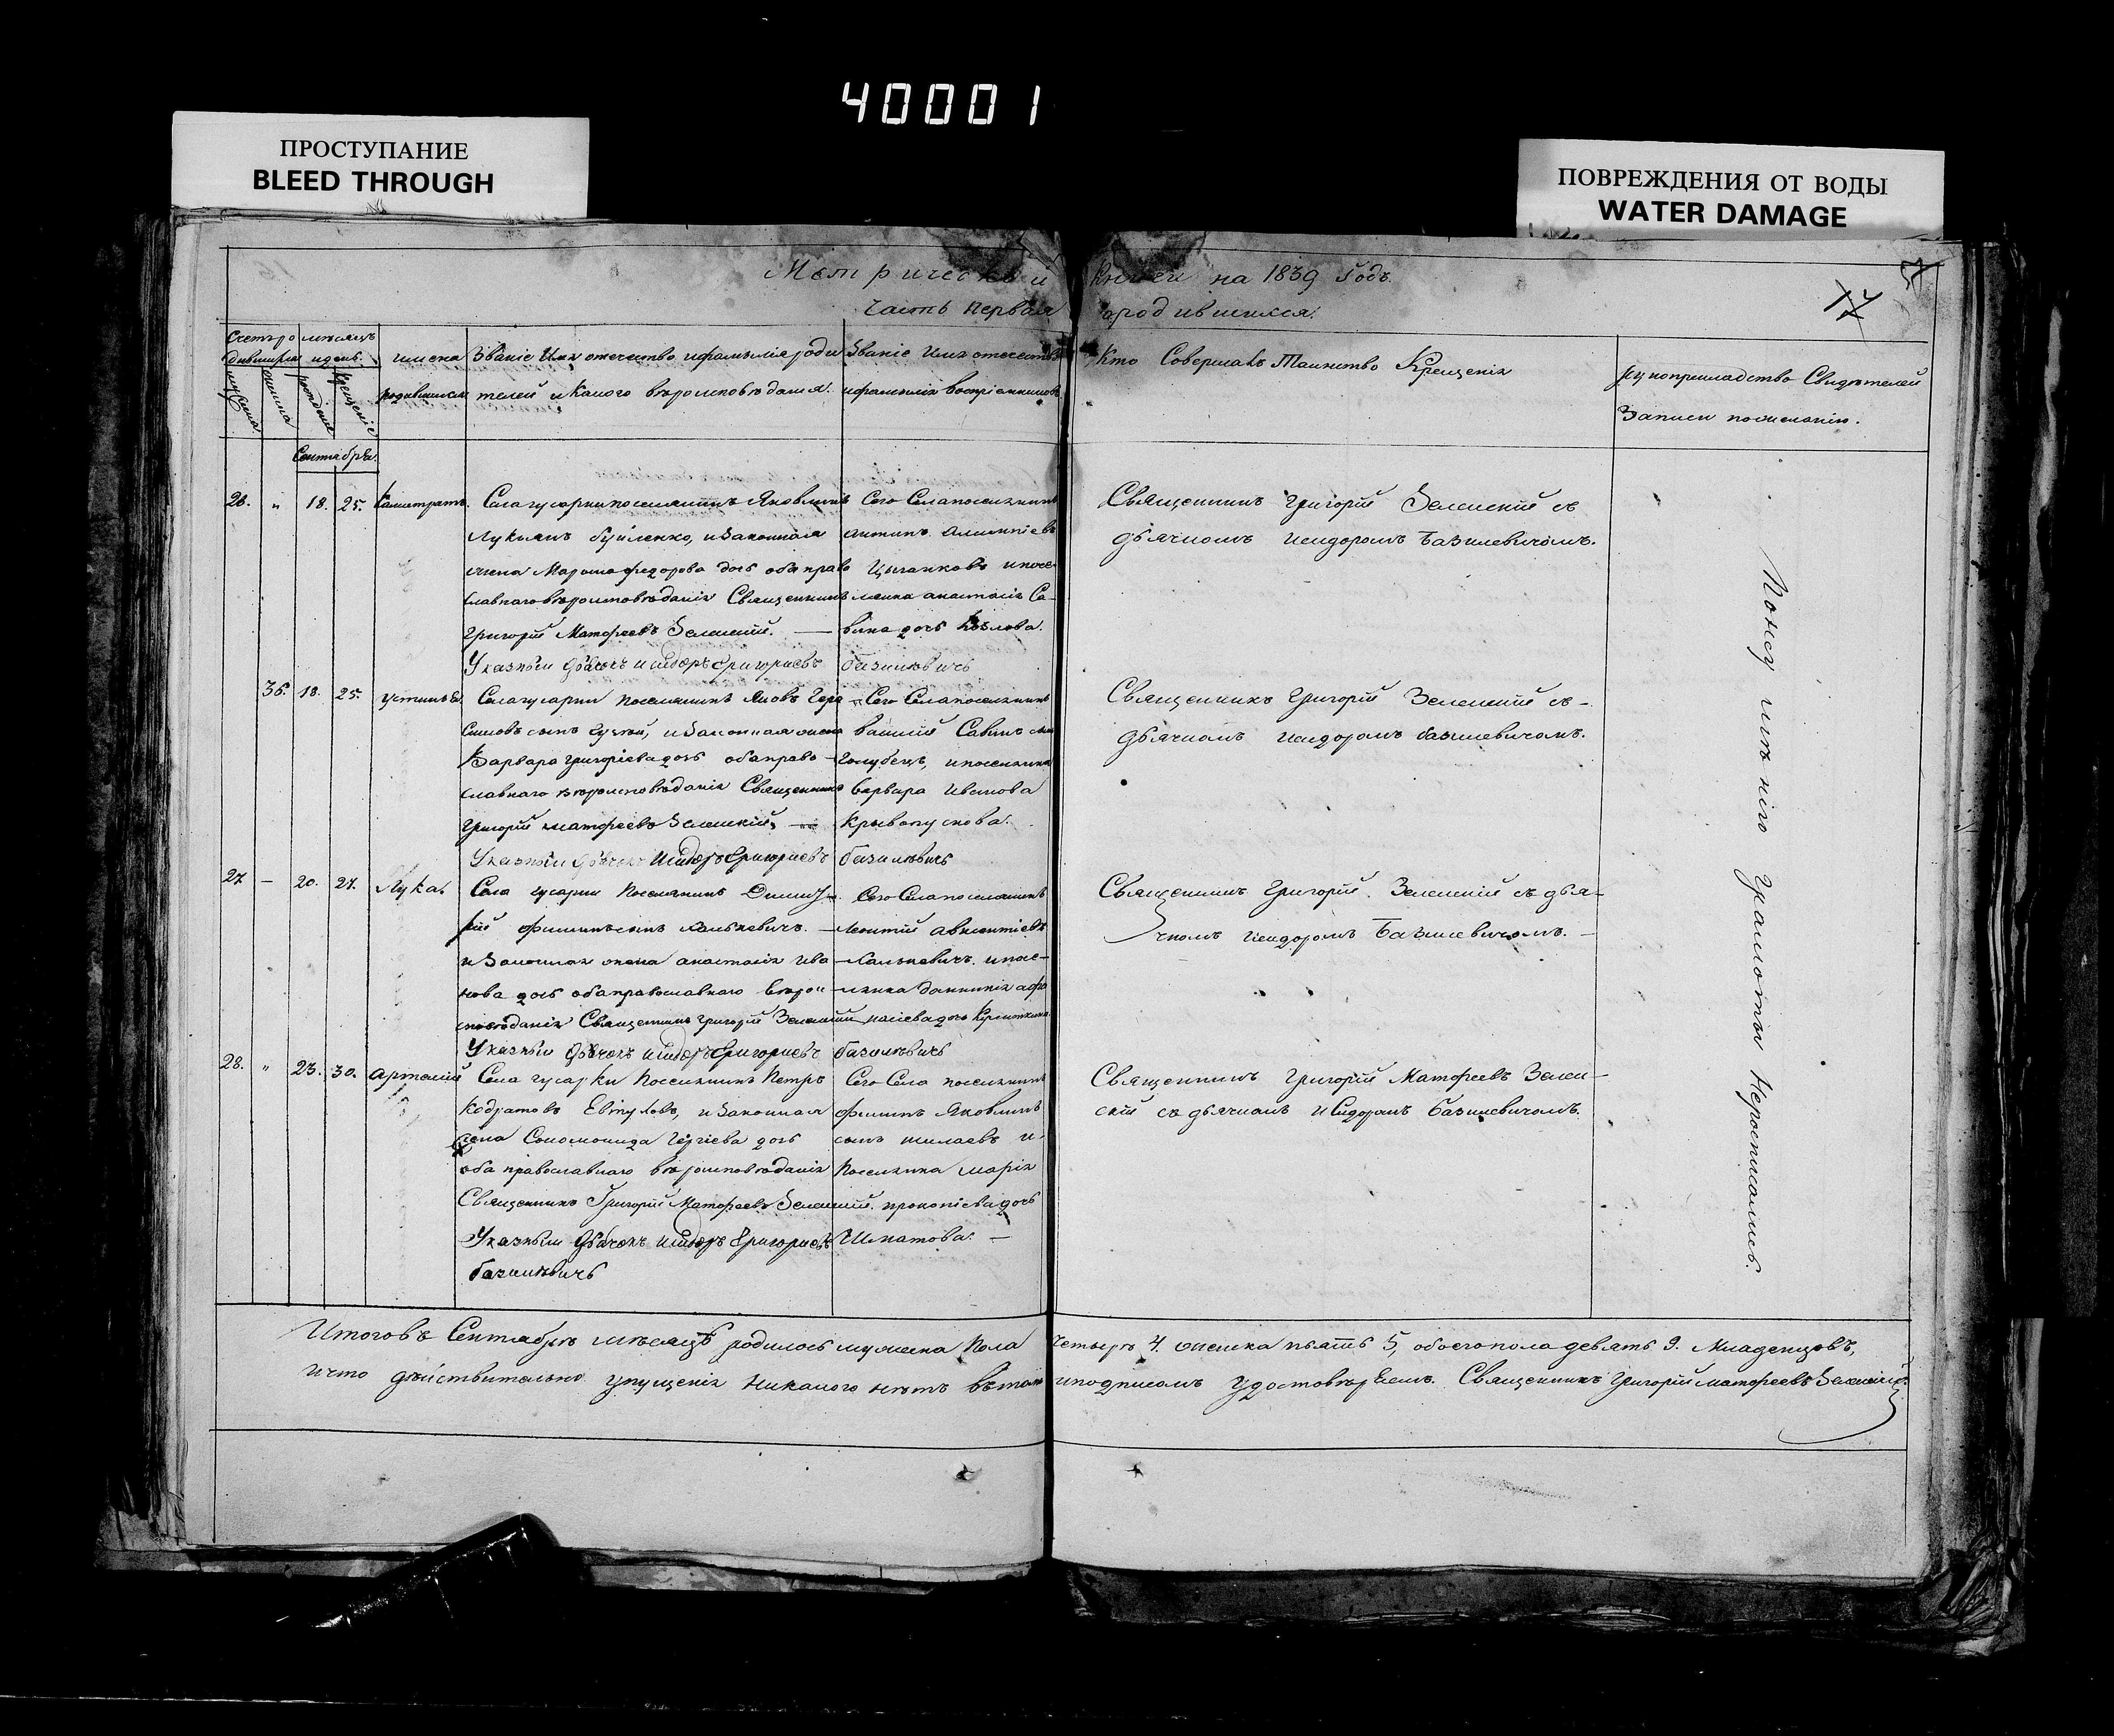 40001
ПРОСТУПАНИЕ
BLEED THROUGH
ПОВРЕЖДЕНИЯ ОТ ВОДЫ
WATER DAMAGE
Метрической Книги на 1839 Годъ.
Часть первая ородившихся.
17
Счетъ ро
дившихся
мѣсяцъ
и день.
мужеска
женска
рожденiе
крещенiе
имена
родившихся
Званiе Имя отечество, ифамилiе роди
телей и Какого вѣроисповѣданiя.
Званiе Имя отечество
ифамилiя воспрiемниковъ
Кто Совершалъ Таинство Крещенiя
рукоприкладство Свидѣтелей
Записи пожеланiю.
Сентября.
26. „ 18. 25. Калистратъ.
Села гусарки поселянинъ Яковлинъ
Лукьянъ буйленко, изаконная
жена Марфа федорова дочь оба право
славнаго вѣроисповѣданiя Священникъ
Григорiй Матфеевъ Зеленскiй. —
Указный дьячекъ Исидоръ Григориевъ базилевичь
Сего Села поселянинъ
антипъ
Цыганковъ ипосе-
лянка анастасiя Са-
вина дочь Козлова.
Священникъ Григорiй Зеленскiй съ
дьячкомъ Исидоромъ Базилевичомъ.
36. 18. 25. устинья.
Села гусарки поселянинъ Яковъ Гера
симовъ сынъ гуткой, изаконная жена
Варвара григорiева дочь оба право-
славнаго вѣроисповѣданiя Священникъ
Григорiй матфеевъ Зеленскiй, —
Указный дьячекъ Исидоръ Григориевъ базилевичь
Сего Села поселянинъ
василiй Савинъ сынъ
Голубецъ, ипоселянка
варвара Иванова
Кривопускова.
Священникъ Григорiй Зеленскiй съ-
дьячкомъ исидоромъ базилевичомъ.
27 — 20. 27. Лука.
Села гусарки Поселянинъ Димит-
рiй филипъ сынъ Халькевичъ. —
и Законная жена анастасiя Ива
нова дочь оба православнаго вѣрои-
споведанiя Священникъ Григорiй Зеленскiй
Указный дьячекъ исидоръ Григориевъ базилевичь
Сего Села поселянинъ
Леонтiй авксентiевъ
Халькевичъ. ипосе-
лянка
Священникъ Григорiй. Зеленскiй съ дья-
чкомъ Исидоромъ Базилевичомъ. —
28. „ 23. 30. артемiй
Села гусарки Поселянинъ Петръ
Кодратовъ Евтуховъ, изаконная
жена Соломонида дочь
оба православнаго вѣроисповѣданiя
Священникъ Григорiй Матфеевъ Зеленскiй.
Указный дьячекъ исидоръ Григориевъ
базилевичь
Сего Села поселянинъ
филипъ Яковлинъ
сынъ и-
Поселянка марiя
прокопiева дочь
Шматова. —
Священникъ Григорiй Матфеевъ Зелен-
скiй съ дьячкомъ Исидоромъ базилевичомъ.
Понеумѣнiю грамоты Нероспи­сались.
Итоговъ Сентябрѣ мѣсяцѣ родилось мужеска Пола четырѣ 4. женска пьятъ 5, обоего пола девять 9. Младенцовъ,
ичто дѣйствительно упущенiя никакого нѣтъ вътомъ иподписомъ удостовѣряемъ. Священникъ григорiй матфеевъ Зеленскiй.